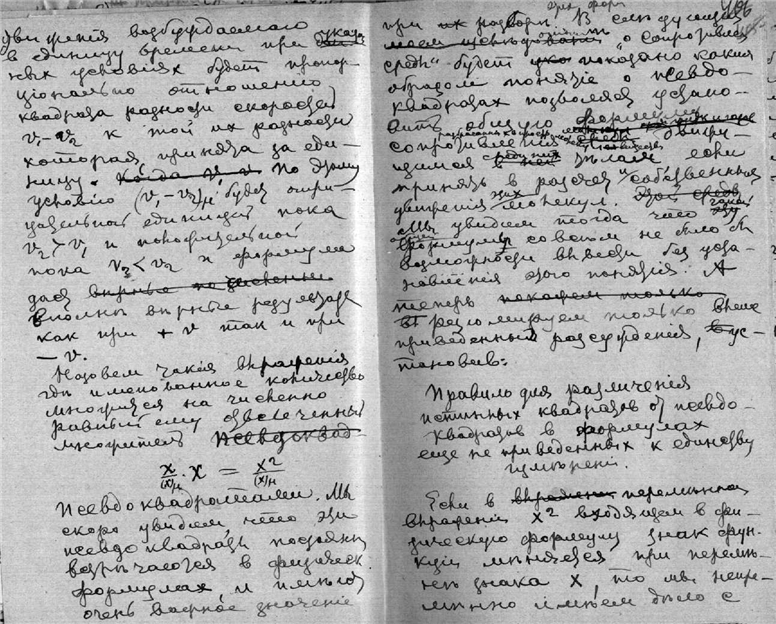 движенія возбуждаемаго
в единицу времени при указан
ных условіях будет пропор
ціонально отношенію
квадрата разности скоростей
v₁-v₂ к той их разности
которая принята за еди-
ницу. Когда v₁ v₂ По этому
условію (v₁-v₂)м будет отри-
цательной единицей пока
v₂>v₁ и положительной
пока v₂<v₂ и формула
даст верные численные
вполнѣ вѣрные результаты
как при + v так и при
- v.
Назовем такія выраженія
гдѣ именованное количество
множится на численно
равный ему отвлеченный
множитель псевдоквад-
x/(x)м · x = x²/(x)м
псевдоквадратами. Мы
скоро увидим, что эти
псевдоквадраты постоянно
встрѣчаются в физическ.
формулах, и имѣют
очень важное значеніе
при их разборѣ. В слѣдующем
моем о сопротивл.
среды" будет показано каким
образом понятіе о псевдо-
квадратах позволяет устано-
вить общую формулу
сопротивленія
щимся в ней тѣлам если
принять в разсчет и собственныя
движенія их молекул. Этой
Мы увидим тогда что такой
формулы совсѣм не было бы
возможности вывести без уста-
новленія этого понятія. А
теперь покажем только
резюмируем только выше
приведенныя разсужденія, ус-
тановив:
Правило для различенія
истинных квадратов от псевдо-
квадратов в формулах
еще не приведенных к единству
измѣреній.
Если в выражен перемѣнном
выраженіи x² входящем в фи-
зическую формулу знак функ-
ціи мѣняется при перемѣ-
нѣ знака x, то мы непре-
мѣнно имѣем дѣло с